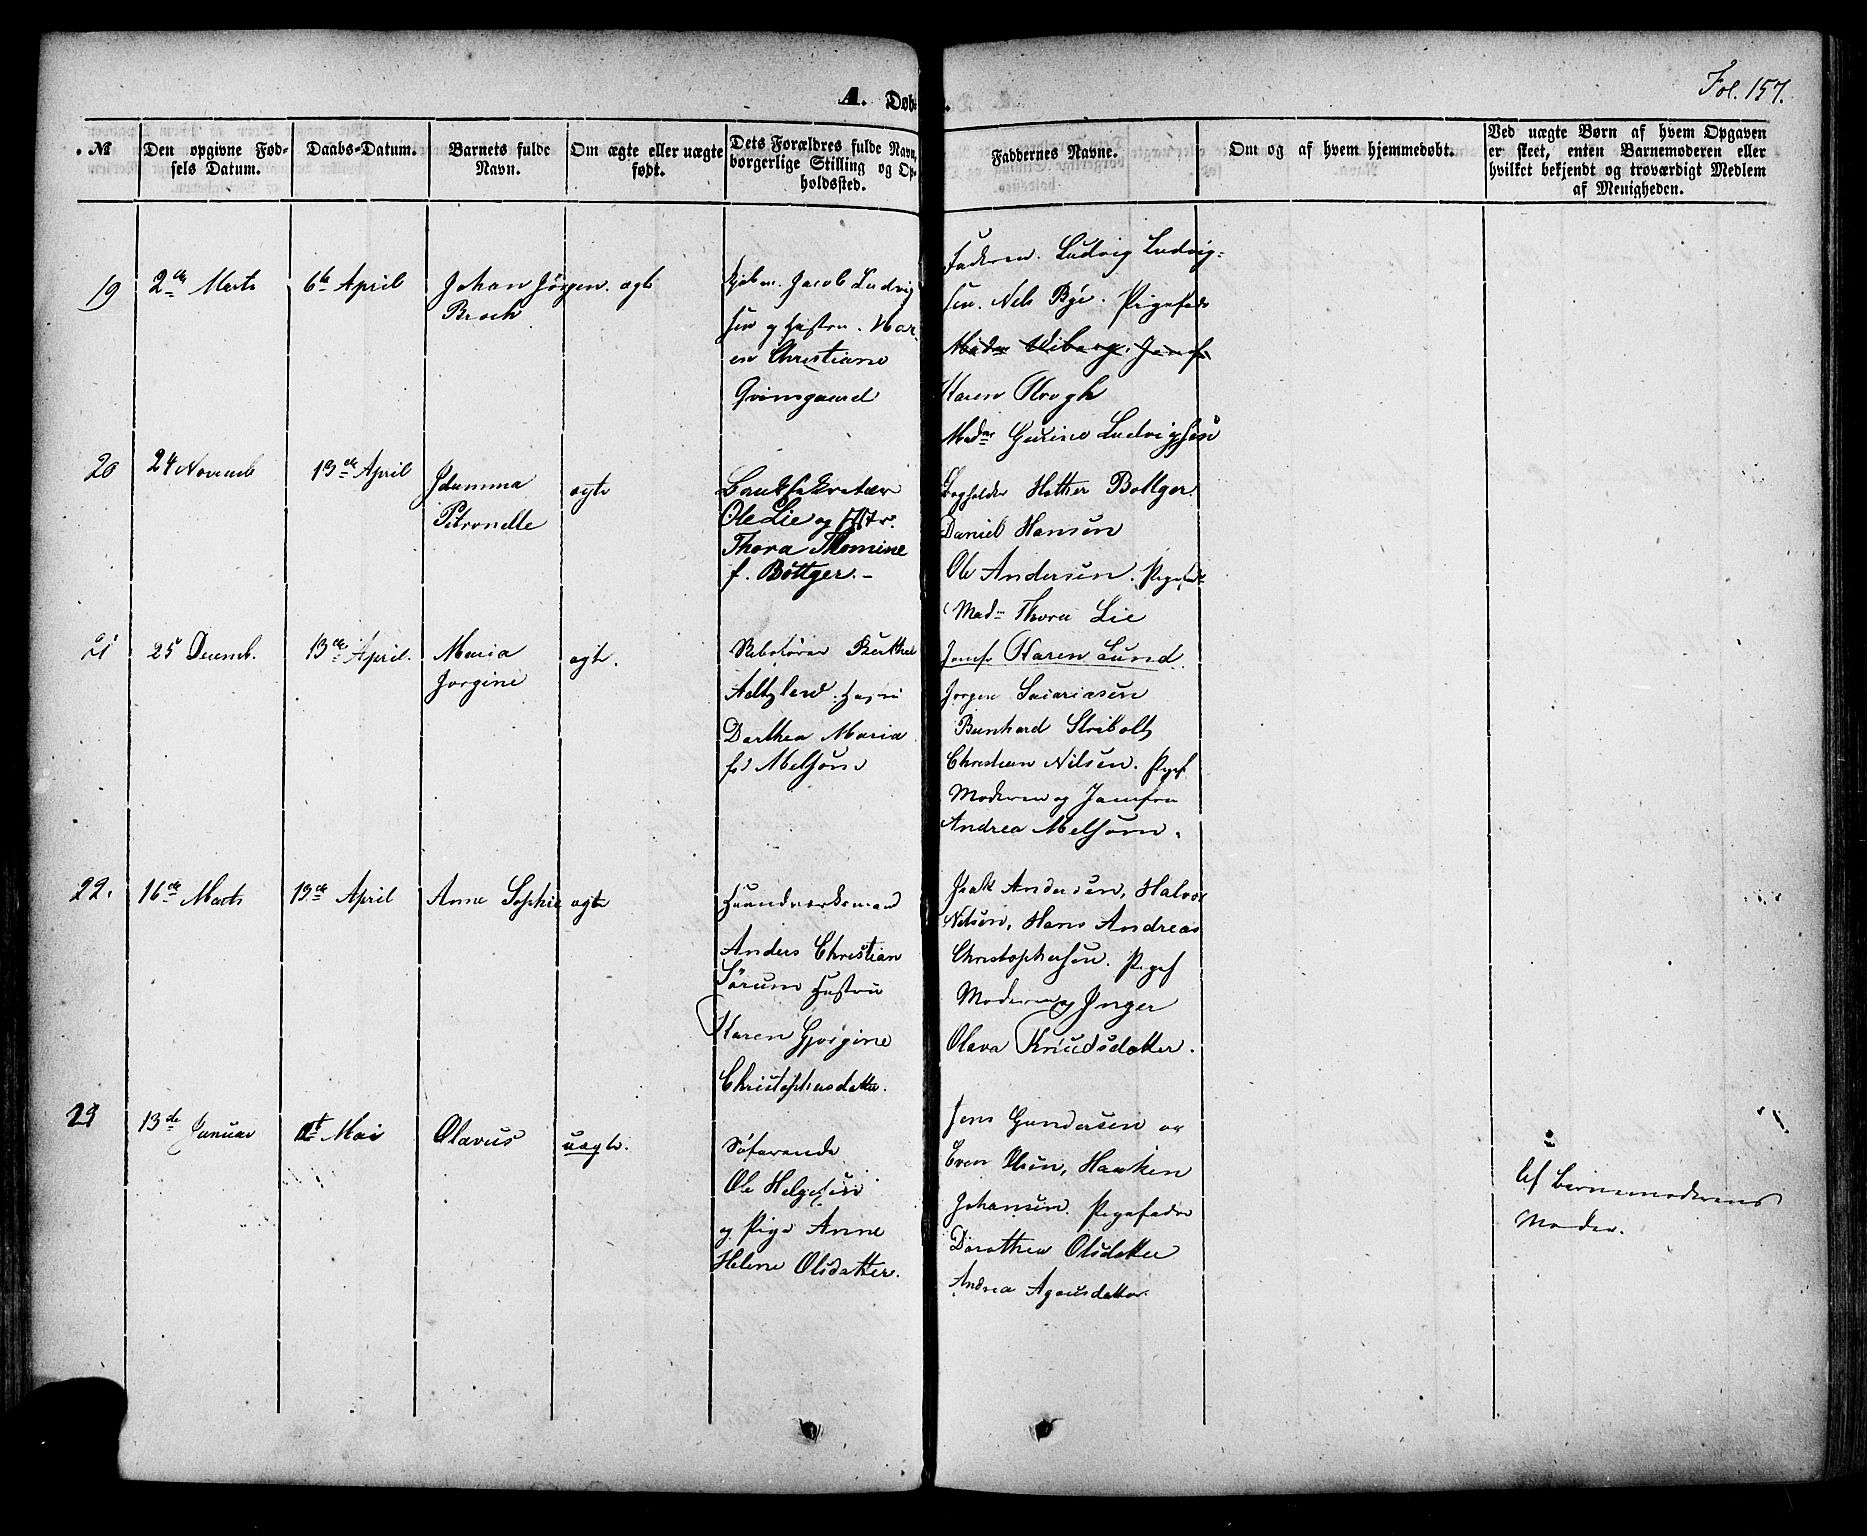 Fol. 157.
A. Døb
.
№
Den opgivne Fød-
sels Datum.
Daabs-Datum.
Barnets fulde
Navn.
Om ægte eller uægte
født.
Dets Forældres fulde Navn,
borgerlige Stilling og Op-
holdssted.
Faddernes Navne.
Om og af hvem hjemmedøbt.
Ved uægte Børn af hvem Opgaven
er skeet, enten Barnemoderen eller
hvilket bekjendt og troværdigt Medlem
af Menigheden.
19
2de Marts
6te April
Johan Jørgen
Broch
ægte
Kjøbm. Jacob Ludvig
sen og Hustru Mar
en Christiane
Grimsgaard
Faderen. Ludvig Ludvig-
sen. Nels Bye. Pigefadd
Madm Wiborg. Jomf
Karen Krogh
Madm Gurine Ludvigsen
20
24 Novemb
13de April
Petronelle
ægte
Banksekretær
Ole Lie og Hstr.
Thora Thomine
f. Bøttger.-
Bogholder Bøttger.
Daniel Hansen
Ole Andersen. Pigefad
Madm Thora Lie
Jomf Karen Lund.
21
25 Decemb.
13de April.
Maria
Jørgine
ægte.
Berthel
Hustru
Dorthea Maria
fød Melsom
Jørgen
Bernhard Stribolt
Christian Nilsen. Pigef
Moderen og Jomfru
Andrea Melsom.
22.
16de Marts
13de April
Anne Sophie
ægte
Haandværksmand
Anders Christian
Sørum Hustru
Karen Gjørgine
Christophersdatter.
Isak Andersen, Halvor
Nilsen, Hans Andreas
Christophersen. Pigef
Moderen og Inger
Olava Knudsdatter.
23
13de Januar
1st Mai
Olavus
uægte.
Søfarende
Ole Helgesen
og Pige Anne
Helene Olsdatter.
Jens Gundersen og
Even Olsen, Haaken
Johansen. Pigefadde
Dorothea Olsdatter
Andrea Agausdatter.
Af Barnemoderens
Moder.